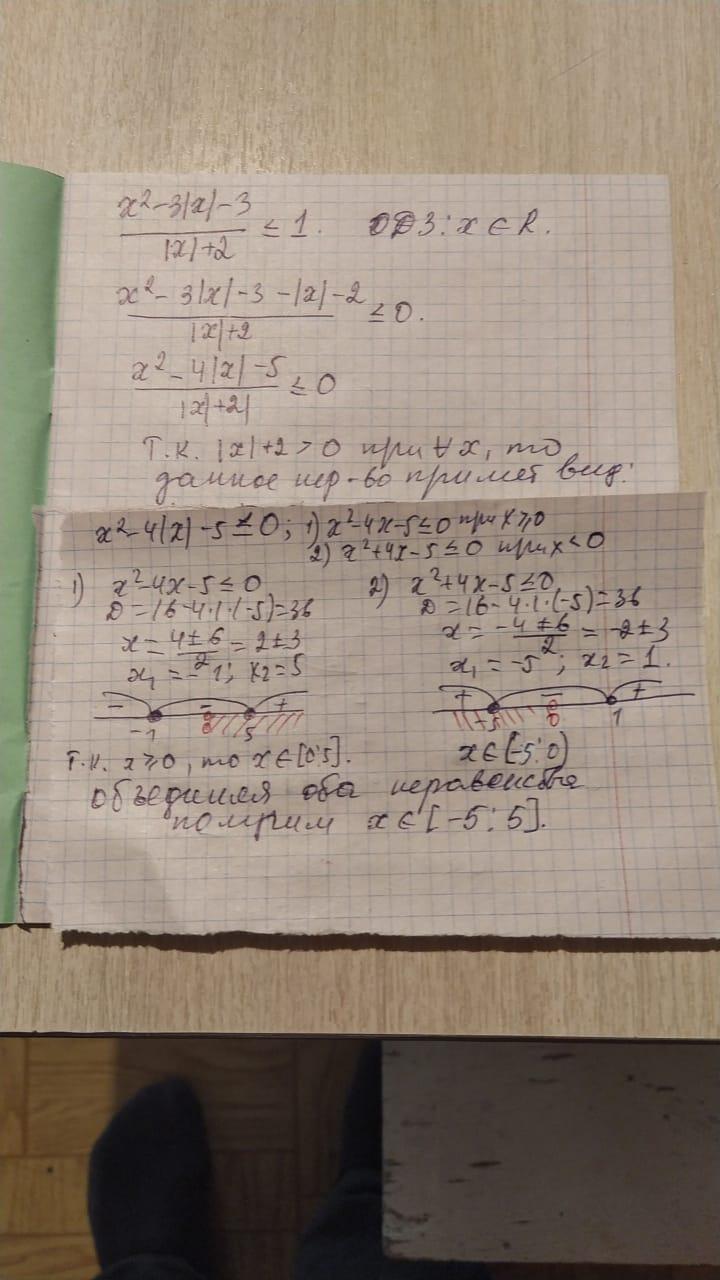 x²-3|x|-3 / |x|+2 ≤ 1. ОДЗ: x ∈ R.
x²-3|x|-3-|x|-2 / |x|+2 ≤ 0.
x²-4|x|-5 / |x|+2| ≤ 0
Т.к. |x|+2>0 при ∀x, то
данное нер-во примет вид:
x²-4|x|-5≤0; 1) x²-4x-5≤0 при x≥0
2) x²+4x-5≤0 при x<0
1) x²-4x-5≤0
D=16-4·1·(-5)=36
x=4±6/2=2±3
x₁=-1; x₂=5
- - +
-1 0 5
Т.к. x≥0, то x∈[0;5].
2) x²+4x-5≤0
D=16-4·1·(-5)=36
x=-4±6/2=-2±3
x₁=-5; x₂=1.
+ - +
0 1
x∈[-5;0)
объединяя оба неравенства
получим x∈[-5;5].